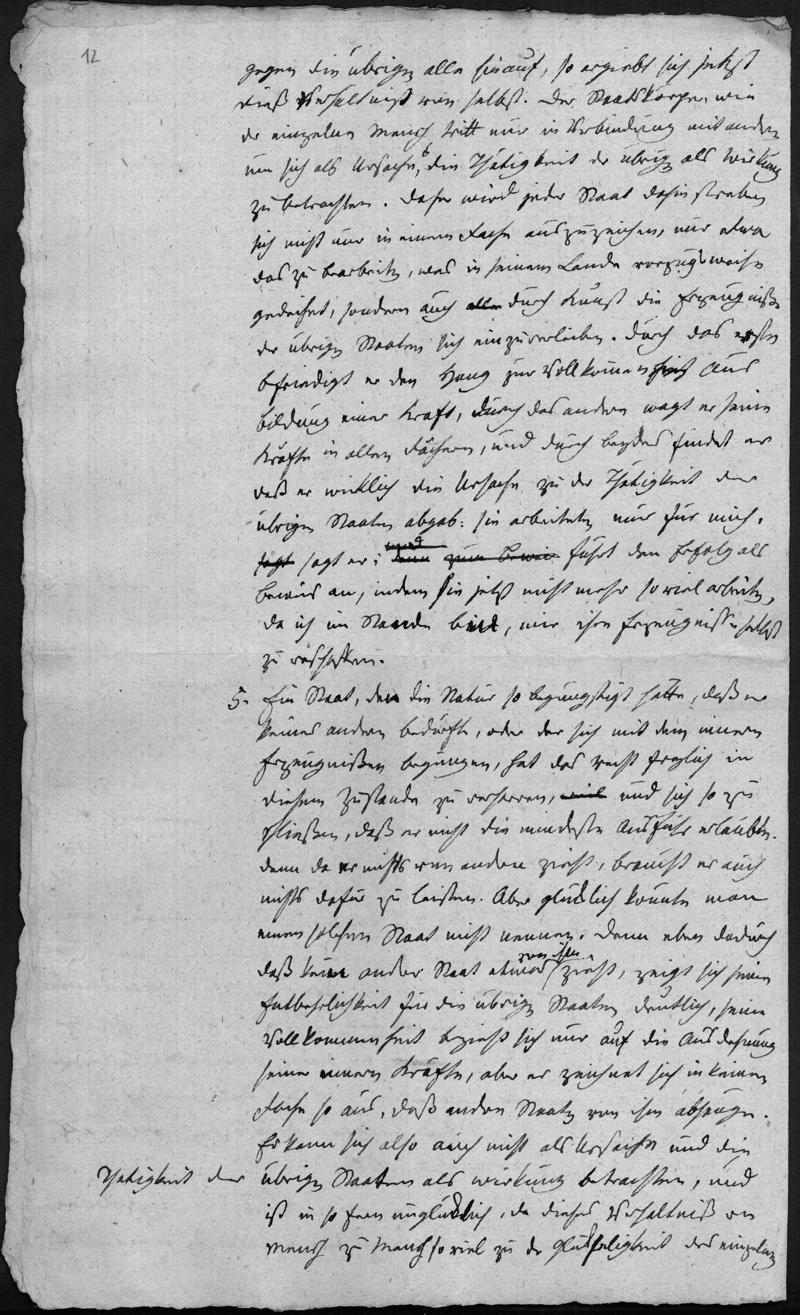 12
gegen die übrigen alle hinauf, so ergiebt sich jetzt
dieß Verhältniß von selbst. Der Staatskörper, wie
der einzelne Mensch tritt nur in Verbindung mit andern
um sich als Ursache, die Thätigkeit der übrigen als Wirkung
zu betrachten. Daher wird jeder Staat dahin streben
sich nicht nur in einem Fache auszuzeichnen, nur etwa
das zu bearbeiten, was in seinem Lande vorzugsweise
gedeihet, sondern auch alle durch Kunst die Erzeugniße
der übrigen Staaten sich einzuverleiben. Durch das erste
befriedigt er den Hang zur Vollkommenheit Aus
bildung einer Kraft, durch das andere wagt er seine
Kräfte in allen Fächern, und durch beydes findet er
daß er wirklich die Ursache zu der Thätigkeit der
übrigen Staaten abgab: sie arbeiteten nur für mich,
sagt sagt er; und denn zum Beweis führt den Erfolg als
Beweis an, indem sie jetzt nicht mehr so viel arbeiten,
da ich im Stande bin, mir ihre Erzeugniße selbst
zu verschaffen.
5. Ein Staat, den die Natur so begünstigt hätte, daß er
keines andern bedürfte, oder der sich mit dem innern
Erzeugnißen begnügen, hat das Recht freylich in
diesem Zustande zu verharren, weil und sich so zu
schließen, daß er nicht die mindeste Ausfuhr erlaubte.
denn da er nichts von andern zieht, braucht er auch
nichts dafür zu leisten. Aber glücklich könnte man
einen solchen Staat nicht nennen. Denn eben dadurch
daß kein andrer Staat etwas von ihm zieht, zeigt sich seine
Entbehrlichkeit für die übrigen Staaten deutlich, seine
Vollkommenheit bezieht sich nur auf die Ausdehnung
seiner innern Kräfte, aber er zeichnet sich in keinem
Fache so aus, daß andre Staaten von ihm abhängen.
Er kann sich also auch nicht als Ursache und die
Thätigkeit der übrigen Staaten als Wirkung betrachten, und
ist in so fern unglücklich, da dieses Verhältniß von
Mensch zu Mensch so viel zu der Glückseligkeit des einzelnen